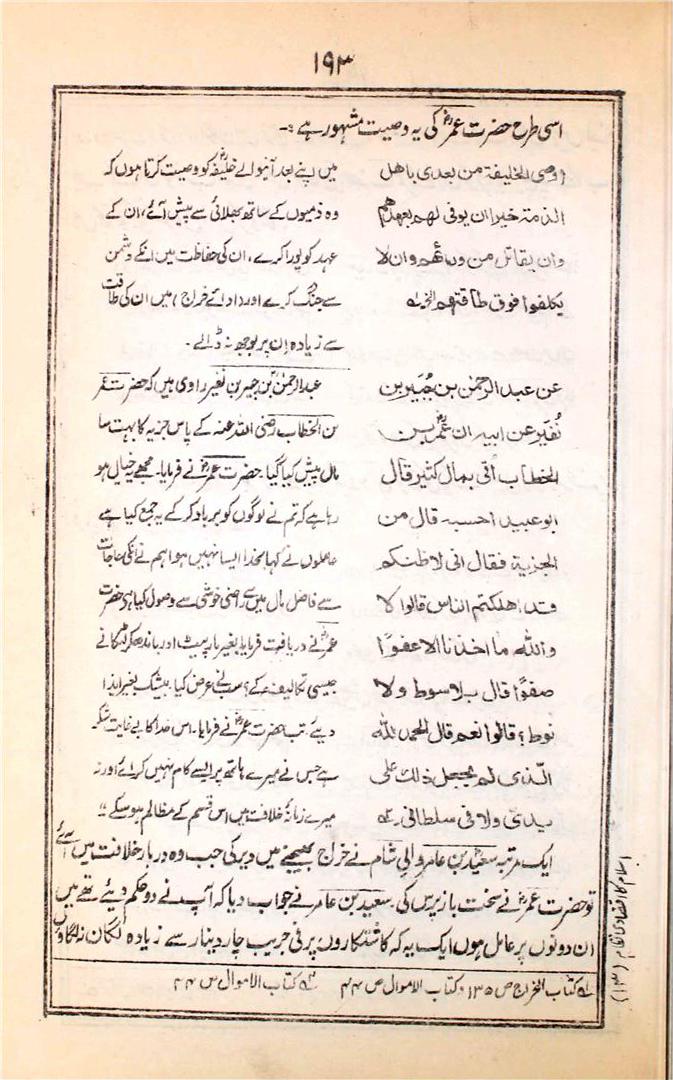 ۱۹۳
اسی طرح حضرت عمرؓ کی یہ وصیت مشہور ہے :-
اوصی الخلیفة من بعدی باهل
الذمة خیرا ان یوفی لهم بعهدهم
وان یقاتل من ورائهم وان لا
یکلفوا فوق طاقتهم الخ ۱ه
میں اپنے بعد آنیوالے خلیفہ کو وصیت کرتا ہوں کہ
وہ ذمیوں کے ساتھ بھلائی سے پیش آئے، ان کے
عہد کو پورا کرے، ان کی حفاظت میں انکے دشمن
سے جنگ کرے اور (ادائے خراج) میں ان کی طاقت
سے زیادہ اِن پر بوجھ نہ ڈالے۔
عن عبد الرحمٰن بن جُبَیر بن
نُفَیر عن ابیہ ان عمرؓ بن
الخطاب اُتی بمال کثیر قال
ابو عبید احسبه قال من
الجزیة فقال انی لاظنکم
قد اهلکتم الناس قالوا لا
والله ما اخذنا الا عفوًا
صفوًا قال بلا سوط ولا
نوط؟ قالوا نعم قال الحمد لله
الّذی لم یجعل ذلك علی
یدی ولا فی سلطانی ۲ه
عبدالرحمٰن بن جبیر بن نفیر راوی ہیں کہ حضرت عمر
بن الخطاب رضی اللہ عنہ کے پاس جزیہ کا بہت سا
مال پیش کیا گیا۔ حضرت عمرؓ نے فرمایا۔ مجھے یہ خیال ہو
رہا ہے کہ تم نے لوگوں کو برباد کر کے یہ جمع کیا ہے
عاملوں نے کہا بخدا ایسا نہیں ہوا ہم نے انکی حاجات
سے فاضل مال میں سے راضی خوشی سے وصول کیا ہی حضرت
عمرؓ نے دریافت فرمایا بغیر مار پیٹ اور باندھ کر لٹکانے
جیسی تکالیف کے؟ سب نے عرض کیا۔ بیشک بغیر ایذا
دیئے۔ تب حضرت عمرؓ نے فرمایا۔ اس خدا کا بے غایت شکر
ہے جس نے میرے ہاتھ پر ایسے کام نہیں کرائے اور نہ
میرے زمانۂ خلافت میں اس قسم کے مظالم ہو سکے "
ایک مرتبہ سعیدؓ بن عامر والی شام نے خراج بھیجنے میں دیر کی جب وہ دربار خلافت میں آئے
تو حضرت عمرؓ نے سخت باز پرس کی۔ سعید بن عامر نے جواب دیا کہ آپ نے دو حکم دیئے تھے میں
ان دونوں پر عامل ہوں ایک یہ کہ کاشتکاروں پر فی جریب چار دینار سے زیادہ لگان نہ لگاؤں
۱ه کتاب الخراج ص ۱۳۵ و کتاب الاموال ص ۴۴ ۲ه کتاب الاموال ص ۴۴
اسلام کا اقتصادی نظام (۱۳)